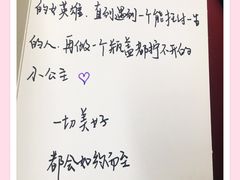 的女英雄.直到遇到一个能托付一生
的人.再做一个瓶盖都拧不开的
小公主
一切美好
都会如约而至